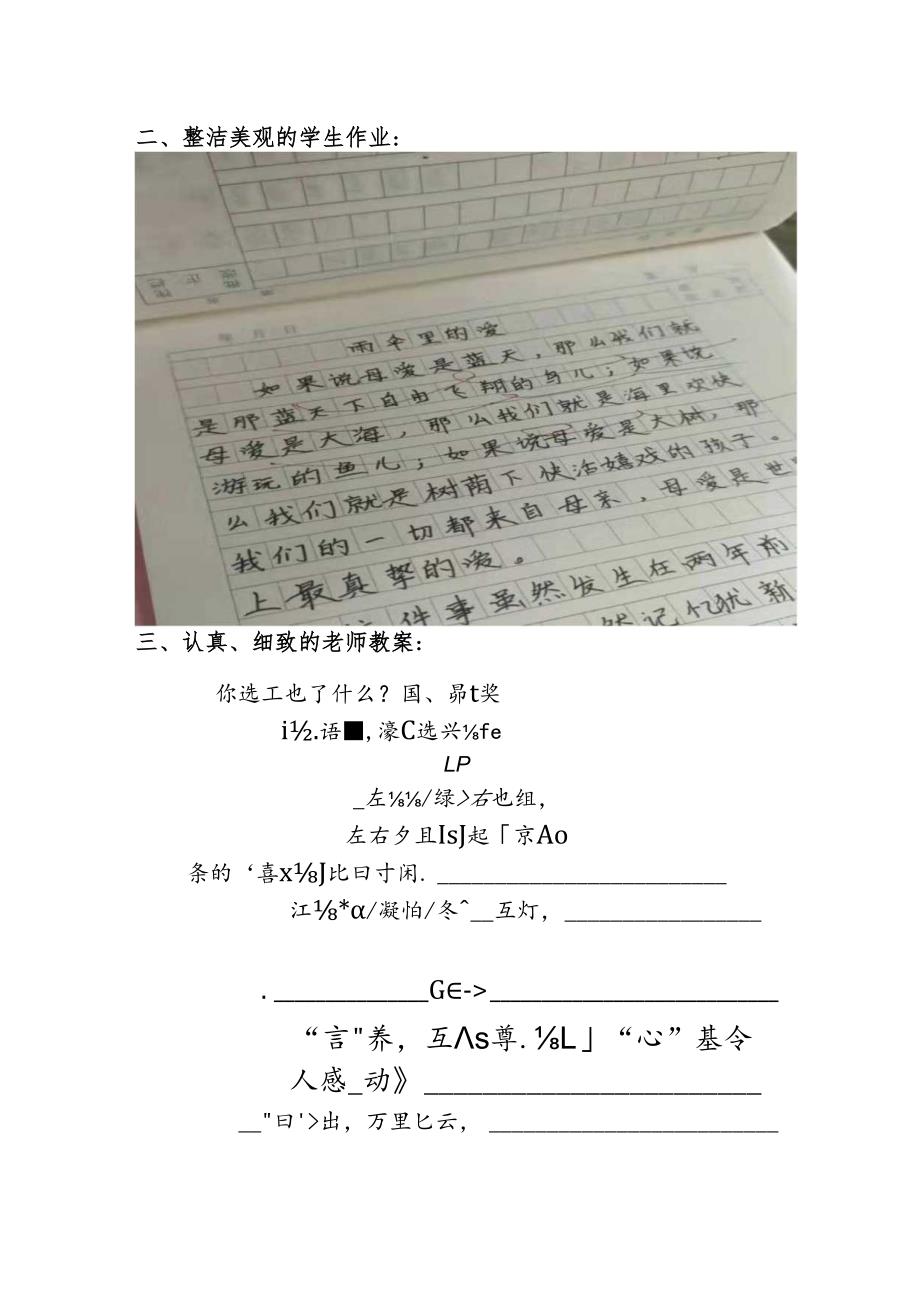 二、整洁美观的学生作业：
年 月 日
雨伞里的爱
如果说母爱是蓝天，那么我们就
是那蓝天下自由飞翔的鸟儿；如果说
母爱是大海，那么我们就是海里欢快
游玩的鱼儿；如果说母爱是大树，那
么我们就是树荫下快活嬉戏的孩子。
我们的一切都来自母亲，母爱是世
上最真挚的爱。
件事虽然发生在两年前
然记忆犹新
三、认真、细致的老师教案：
你选工也了什么？国、昴t奖
i½.语■,濠C选兴⅛fe
LP
_左⅛⅛/绿>右也组，
左右夕且IsJ起「京Ao
条的‘喜x⅛J比曰寸闲. __________________________
江⅛*α/凝怕/冬^__互灯，__________________
. ______________G∈->__________________________
“言"养，互Λs尊.⅛L」“心”基令
人感_动》__________________________
__"曰'>出，万里匕云，__________________________